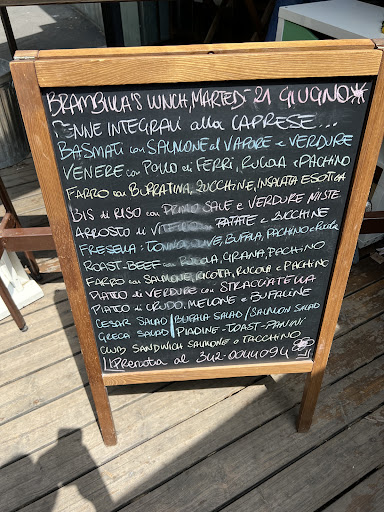 BRAMBILLA'S LUNCH, MARTEDÌ 21 GIUGNO
PENNE INTEGRALI alla CAPRESE...
BASMATI con SALMONE al VAPORE e VERDURE
VENERE con POLLO ai FERRI, RUCOLA e PACHINO
FARRO con BURRATINA, ZUCCHINE, INSALATA ESOTICA
BIS di RISO con SALE e VERDURE MISTE
ARROSTO di VITELLO PATATE e ZUCCHINE
FRESELLA: TONNO, OLIVE, BUFALA, PACHINO e Rucola
ROAST-BEEF con RUCOLA, GRANA, PACHINO
FARRO con SALMONE, RICOTTA, RUCOLA e PACHINO
PIATTO di VERDURE con STRACCIATELLA
PIATTO di CRUDO, MELONE e BUFALINE
CESAR SALAD / BUFALA SALAD / SALMON SALAD
GRECA SALAD / PIADINE-TOAST-PANINI
CLUB SANDWICH SALMONE o TACCHINO
Prenota al 342-0044094